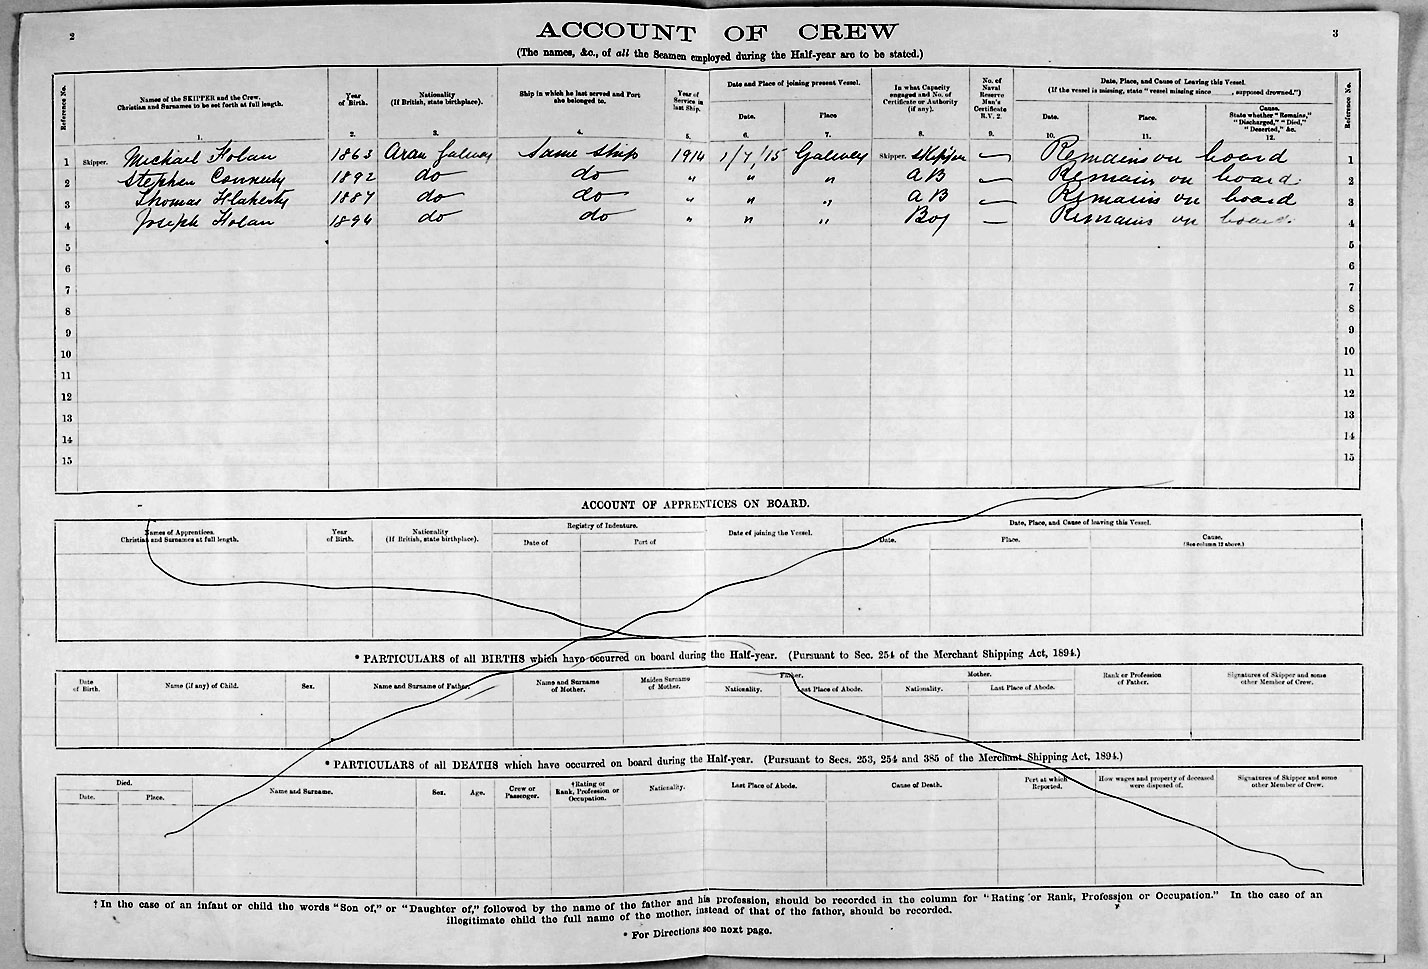 2
3
ACCOUNT OF CREW
(The names, &c., of all the Seamen employed during the Half-year are to be stated.)
Reference No.
Names of the SKIPPER and the Crew.
Christian and Surnames to be set forth at full length.
1.
Year of Birth.
2.
Nationality
(If British, state birthplace).
3.
Ship in which he last served and Port she belonged to.
4.
Year of Service in last Ship.
5.
Date and Place of joining present Vessel.
Date.
6.
Place
7.
In what Capacity engaged and No. of Certificate or Authority (if any).
8.
No. of Naval Reserve Man's Certificate R.V. 2.
9.
Date, Place, and Cause of Leaving this Vessel.
(If the vessel is missing, state "vessel missing since , supposed drowned.")
Date.
10.
Place.
11.
Cause.
State whether "Remains," "Discharged," "Died," "Deserted," &c.
12.
Reference No.
1 Skipper. Michael Folan 1863 Aran Galway Same Ship 1914 1/7/15 Galway Skipper. Skipper — Remains on board 1
2 Stephen Conneely 1892 do do " " " A B — Remains on board. 2
3 Thomas Flaherty 1887 do do " " " A B — Remains on board 3
4 Joseph Folan 1894 do do " " " Boy — Remains on board. 4
5 5
6 6
7 7
8 8
9 9
10 10
11 11
12 12
13 13
14 14
15 15
ACCOUNT OF APPRENTICES ON BOARD.
Names of Apprentices.
Christian and Surnames at full length.
Year of Birth.
Nationality
(If British, state birthplace).
Registry of Indenture.
Date of
Port of
Date of joining the Vessel.
Date, Place, and Cause of leaving this Vessel.
Date.
Place.
Cause.
(See column 12 above.)
* PARTICULARS of all BIRTHS which have occurred on board during the Half-year. (Pursuant to Sec. 254 of the Merchant Shipping Act, 1894.)
Date of Birth.
Name (if any) of Child.
Sex.
Name and Surname of Father.
Name and Surname of Mother.
Maiden Surname of Mother.
Father.
Nationality.
Last Place of Abode.
Mother.
Nationality.
Last Place of Abode.
Rank or Profession of Father.
Signatures of Skipper and some other Member of Crew.
* PARTICULARS of all DEATHS which have occurred on board during the Half-year. (Pursuant to Secs. 253, 254 and 385 of the Merchant Shipping Act, 1894.)
Died.
Date.
Place.
Name and Surname.
Sex.
Age.
Crew or Passenger.
†Rating or Rank, Profession or Occupation.
Nationality.
Last Place of Abode.
Cause of Death.
Port at which Reported.
How wages and property of deceased were disposed of.
Signatures of Skipper and some other Member of Crew.
† In the case of an infant or child the words "Son of," or "Daughter of," followed by the name of the father and his profession, should be recorded in the column for "Rating or Rank, Profession or Occupation." In the case of an
illegitimate child the full name of the mother, instead of that of the father, should be recorded.
* For Directions see next page.